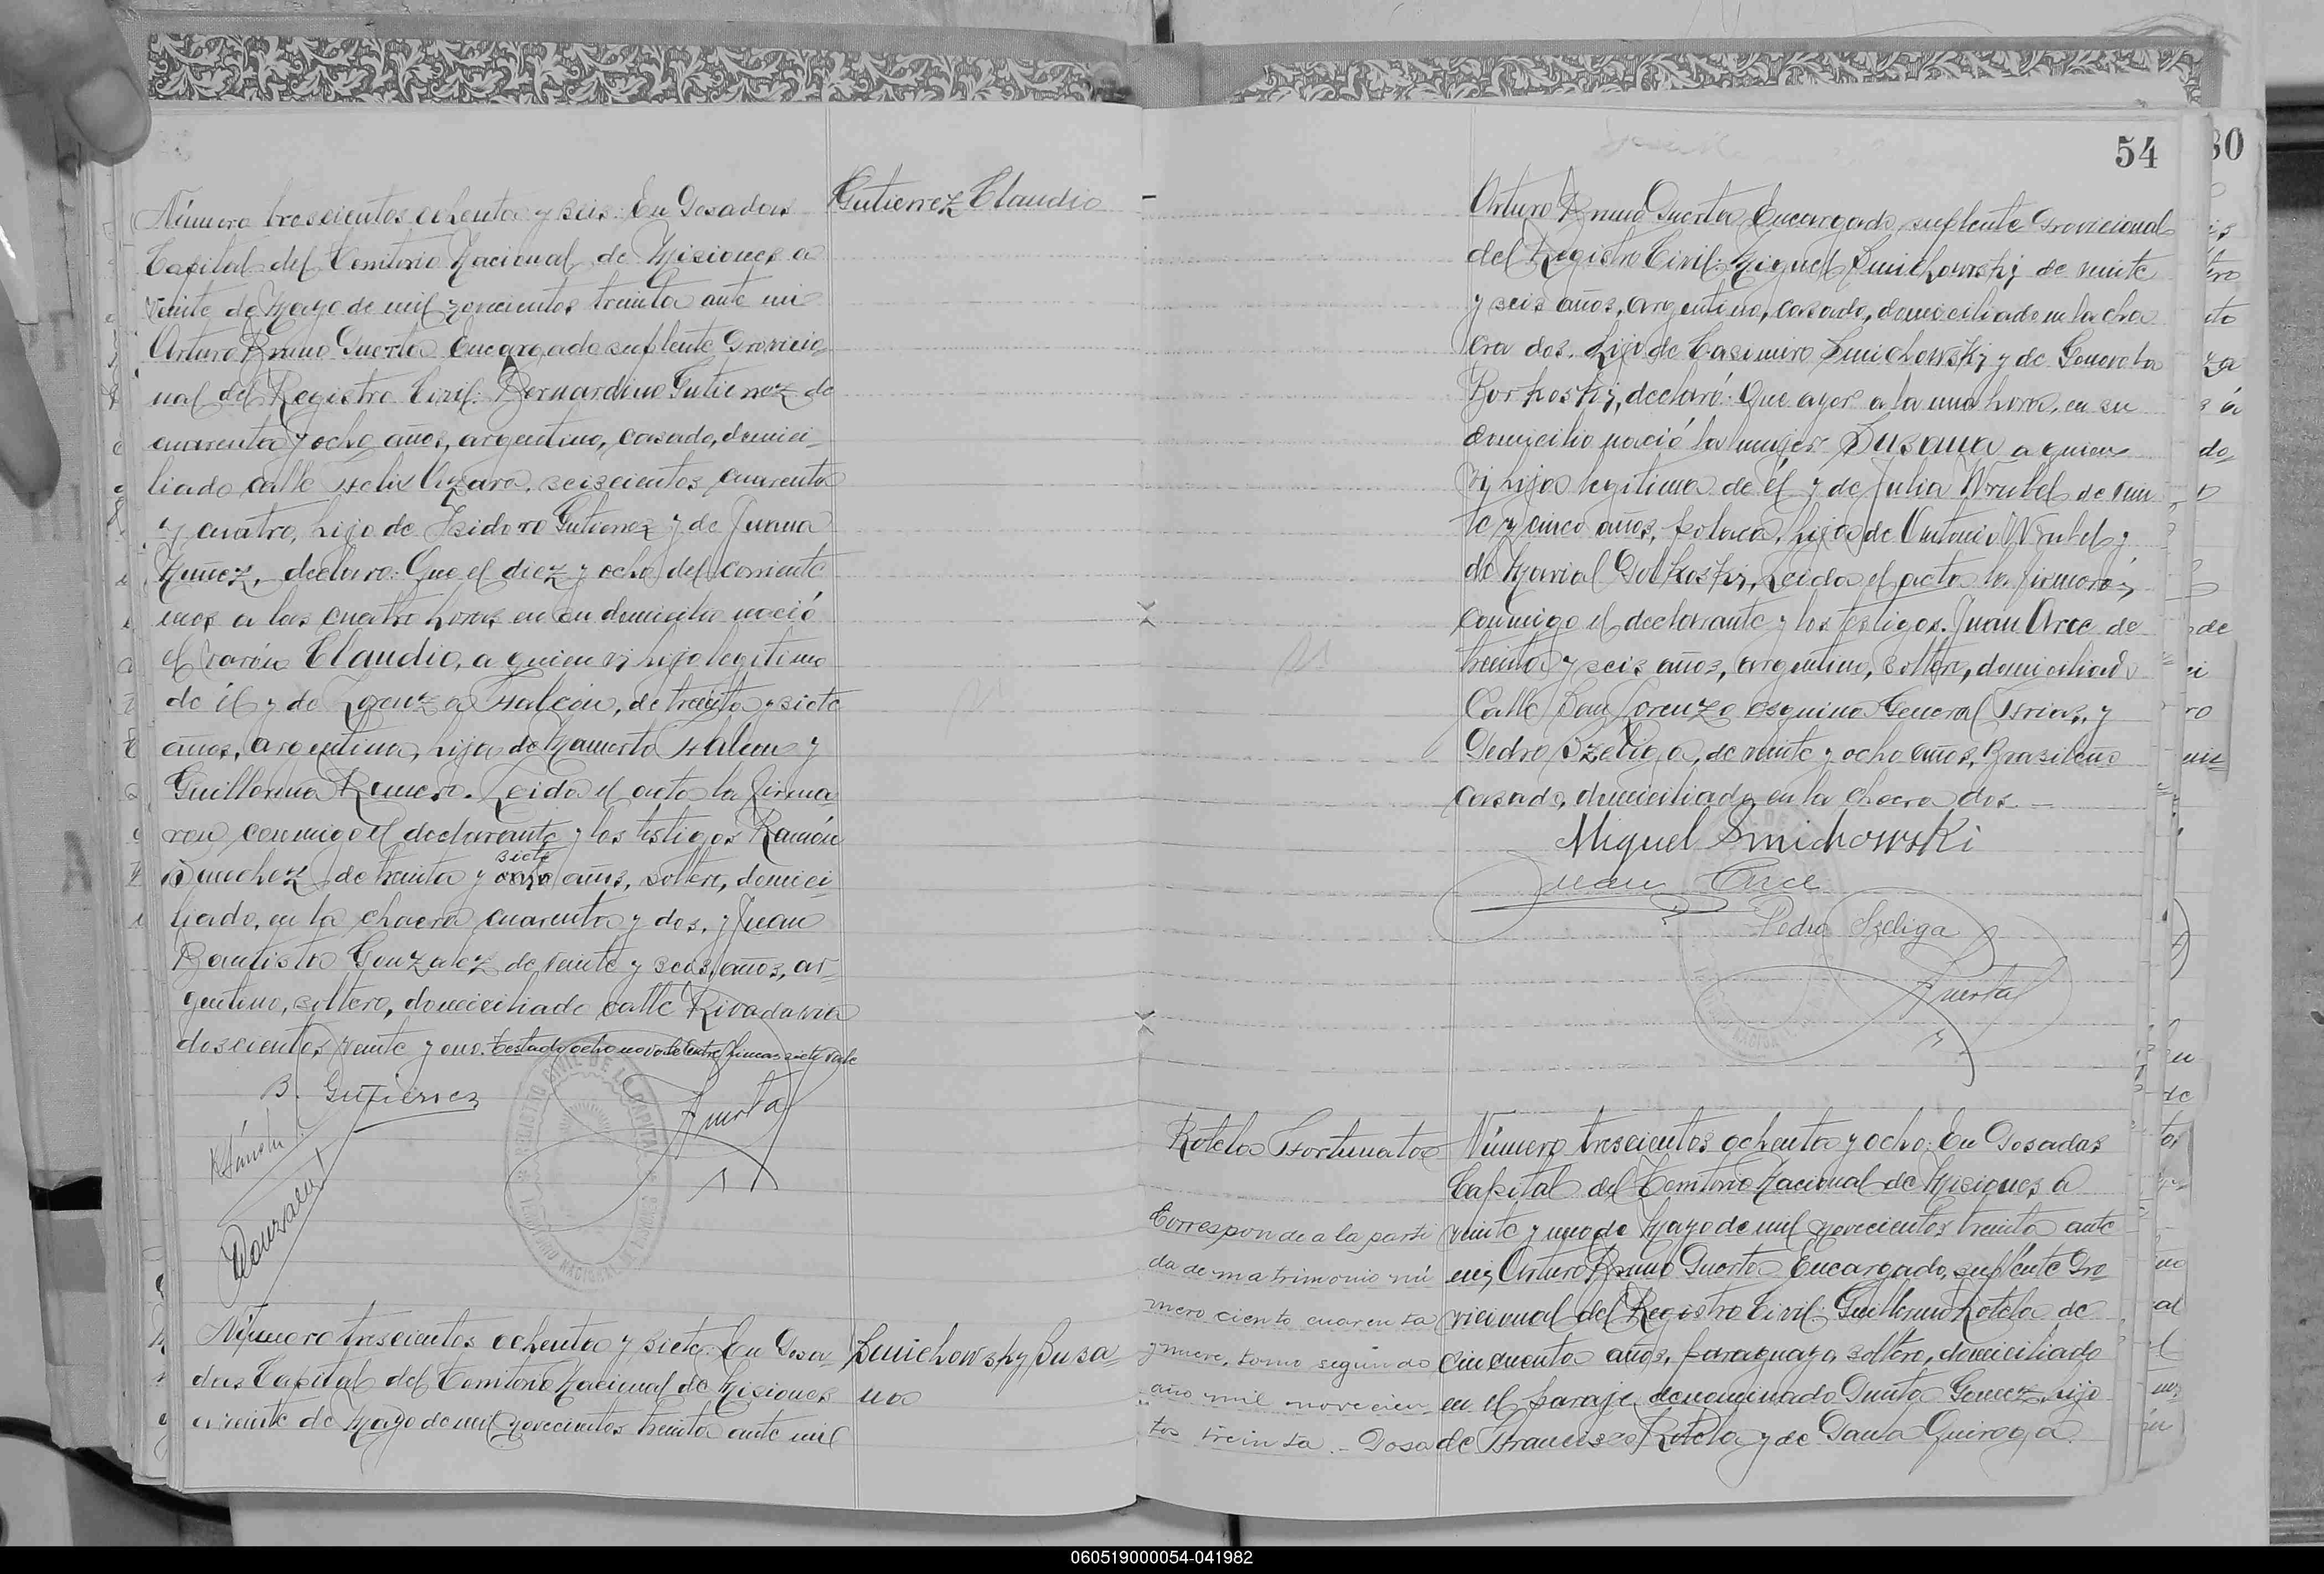 Gutierrez Claudio
Número trescientos ochenta y seis: En Posadas
Capital del Territorio Nacional de Misiones a
veinte de Mayo de mil novecientos treinta ante mi
Arturo Bruno Puerta Encargado suplente Provicio
nal del Registro Civil: Bernardino Gutierrez de
cuarenta y ocho años, argentino, casado, domici-
liado calle Felix Azara, seiscientos cuarenta
y cuatro, hijo de Isidoro Gutierrez y de Juana
Nuñez, declaro: Que el diez y ocho del corriente
mes a las cuatro horas en su domicilio nació
el varón Claudio, a quien vi hijo legitimo
de él y de Lorenza Falcón, de treinta y siete
años, argentina, hija de Mamerto Falcon y
Guillerma Romero. Leida el acta la firma
ron conmigo el declarante y los testigos Ramón
siete
Sanchez de treinta y ocho años, soltero, domici
liado, en la chacra cuarenta y dos, y Juan
Bautista Gonzalez de veinte y seis, años, ar-
gentino, soltero, domiciliado calle Rivadavia
doscientos veinte y uno. Testado ocho no vale Entre lineas siete vale
B. Gutierrez
R Sánchez
Puerta
Gonzalez
REGISTRO CIVIL DE LA CAPITAL
TERRITORIO NACIONAL DE MISIONES
Número trescientos ochenta y siete: En Posa
das Capital del Territorio Nacional de Misiones
a veinte de Mayo de mil novecientos treinta ante mi
Smichowsky Susa-
na
54
80
Arturo Bruno Puerta Encargado, suplente Provicional
del Registro Civil: Miguel Smichowski de veinte
y seis años, argentino, casado, domiciliado en la cha
cra dos. hijo de Casimiro Smichowski y de Genoveva
Borkoski, declaró: Que ayer a la una hora, en su
domicilio nació la mujer Susana a quien
vi hija legitima de él y de Julia Wrubel de vein
te y cinco años, polaca, hija de Antonio Wrubel y
de Maria Golkoski, Leida el acta la firmaron
conmigo el declarante y los testigos. Juan Arce de
treinta y seis años, argentino, soltero, domiciliado
Calle San Lorenzo esquina General Frias, y
Pedro Szeliga, de veinte y ocho años, Brasileño
casado, domiciliado en la chacra dos.
Miguel Smichowski
Juan Arce
Pedro Szeliga
Puerta
Rotela Fortunata
Número trescientos ochenta y ocho: En Posadas
Capital del Territorio Nacional de Misiones a
veinte y uno de Mayo de mil novecientos treinta ante
mi, Arturo Bruno Puerta Encargado, suplente Pro
vicional del Registro Civil: Guillermo Rotela de
cincuenta años, paraguayo, soltero, domiciliado
en el paraje denominado Punta Gomez, hijo
de Francisco Rotela y de Paula Quiroga.
Corresponde a la parti
da de matrimonio nú
mero ciento cuarenta
y nueve, tomo segundo
año mil novecien
tos treinta. - Posa
060519000054-041982